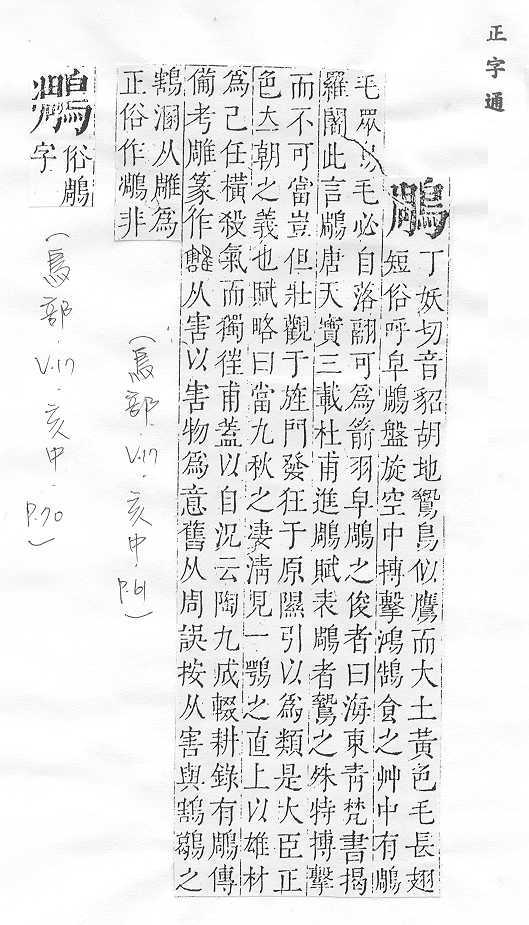 正字通
鵰
丁妖切音貂胡地鷙鳥似鷹而大土黃色毛長翅
短俗呼皁鵰盤旋空中摶擊鴻鵠食之艸中有鵰
毛眾鳥毛必自落翮可為箭羽皁鵰之俊者曰海東青梵書揭
羅闍此言鵰唐天寶三載杜甫進鵰賦表鵰者鷙之殊特摶擊
而不可當豈但壯觀于旌門發狂于原隰引以為類是大臣正
色立朝之義也賦略曰當九秋之淒清見一鶚之直上以雄材
為己任橫殺氣而獨徃甫蓋以自況云陶九成輟耕錄有鵰傳
備考雕篆作从害以害物為意舊从周誤按从害與鶷鶡之
鶷溷从雕為
正俗作非
(鳥部.V.17.亥中.P.61)
俗鵰
字
(鳥部.V.17.亥中.P.70)